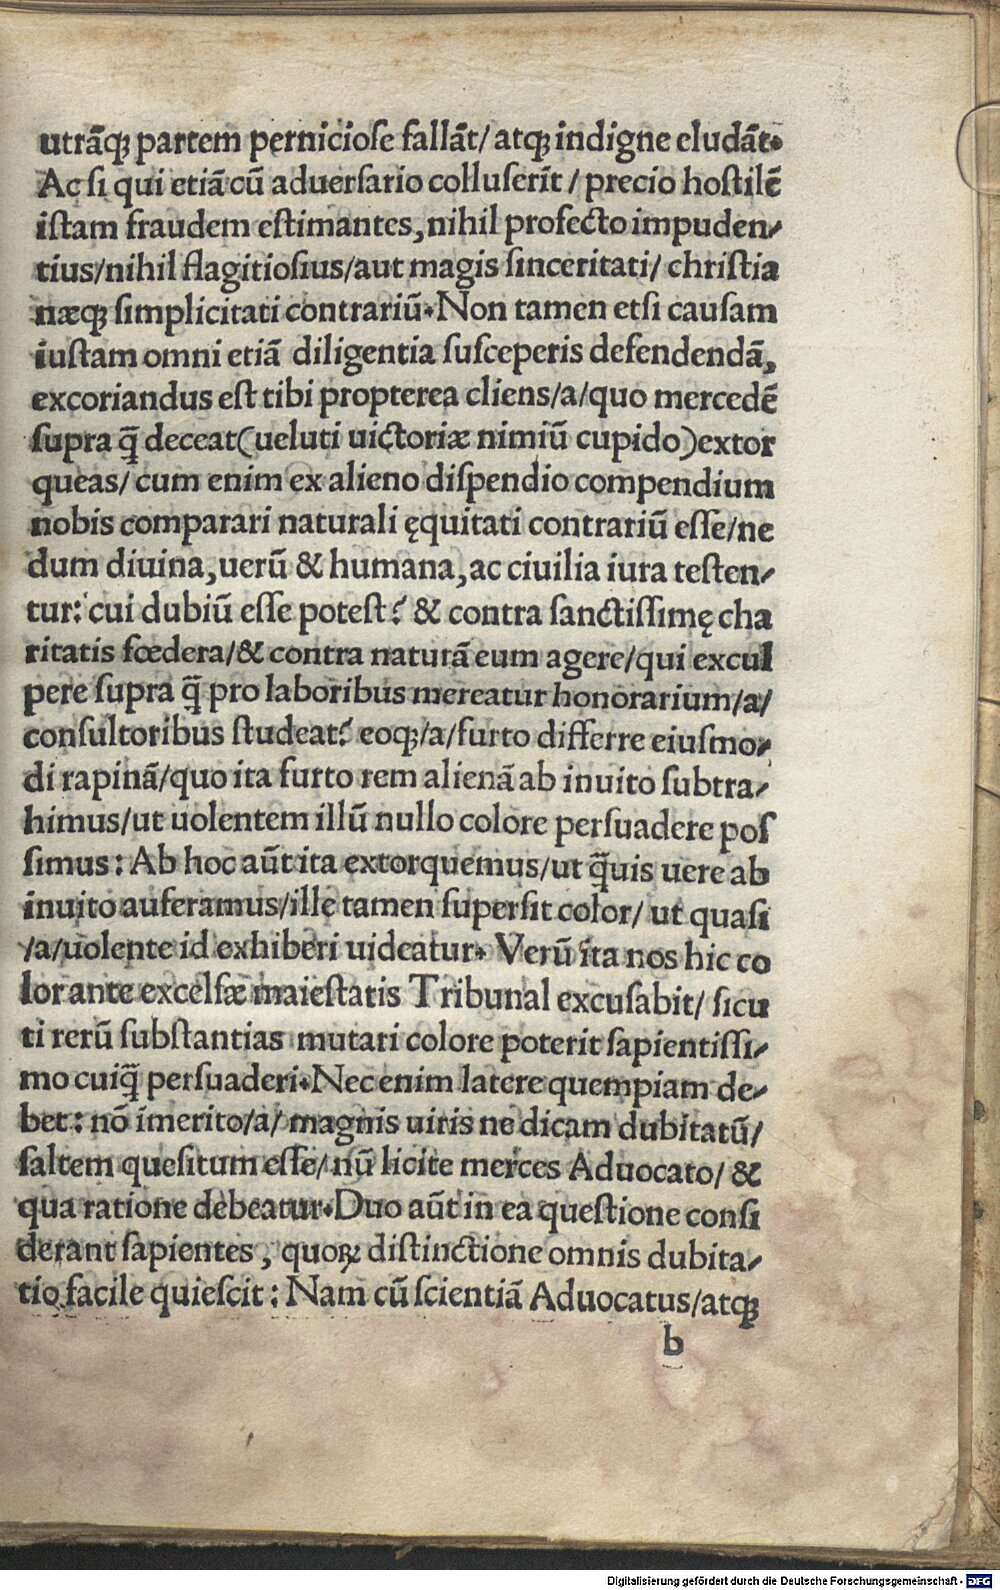 utrãq; partem perniciose fallãt/ atq; indigne eludãt.
Ac si qui etiã cũ aduersario colluserĩt / precio hostilẽ
istam fraudem estimantes, nihil profecto impuden/
tius/nihil flagitiosius/aut magis sinceritati/ christia
næq; simplicitati contrariũ. Non tamen etsi causam
iustam omni etiã diligentia susceperis defendendã,
excoriandus est tibi propterea cliens/a/quo mercedẽ
supra q̃ deceat(ueluti uictoriæ nimiũ cupido)extor
queas/ cum enim ex alieno dispendio compendium
nobis comparari naturali ęquitati contrariũ esse/ne
dum diuina,uerũ & humana,ac ciuilia iura testen/
tur: cui dubiũ esse potest? & contra sanctissimę cha
ritatis fœdera/& contra naturã eum agere/qui excul
pere supra q̃ pro laboribus mereatur honorarium/a/
consultoribus studeat? eoq;/a/furto differre eiusmo/
di rapinã/quo ita furto rem alienã ab inuito subtra/
himus/ut uolentem illũ nullo colore persuadere pos
simus: Ab hoc aũt ita extorquemus/ut q̃uis uere ab
inuito auferamus/ille tamen supersit color/ ut quasi
/a/uolente id exhiberi uideatur. Verũ ita nos hic co
lor ante excelsæ maiestatis Tribunal excusabit/ sicu
ti rerũ substantias mutari colore poterit sapientissi/
mo cuiq̃ persuaderi. Nec enim latere quempiam de/
bet: nõ ĩmerito/a/ magnis uiris ne dicam dubitatũ/
saltem quesitum esse/ nũ licite merces Aduocato/ &
qua ratione debeatur. Duo aũt in ea questione consi
derant sapientes, quoꝝ distinctione omnis dubita/
tio facile quiescit: Nam cũ scientiã Aduocatus/atq;
b
Digitalisierung gefördert durch die Deutsche Forschungsgemeinschaft - DFG